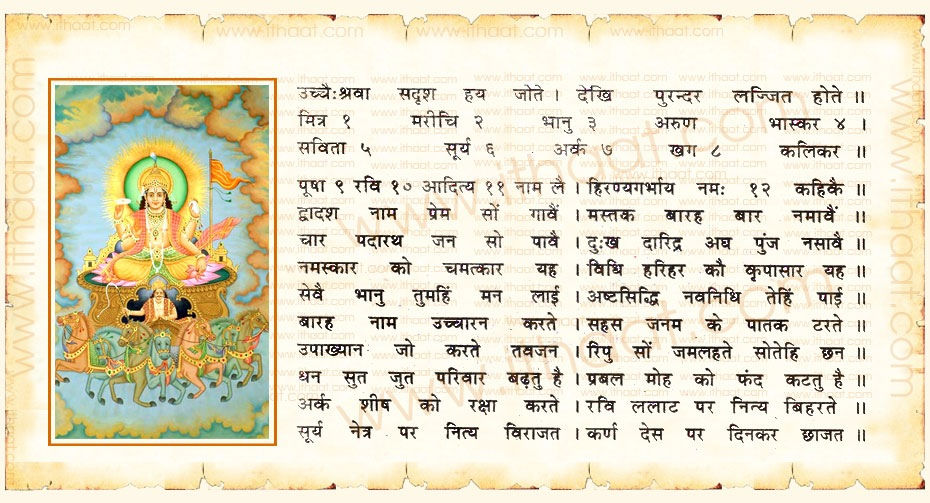 उच्चैःश्रवा सदृश हय जोते। देखि पुरन्दर लज्जित होते॥
मित्र १ मरीचि २ भानु ३ अरुण भास्कर ४।
सविता ५ सूर्य ६ अर्क ७ खग ८ कलिकर॥
पूषा ९ रवि १० आदित्य ११ नाम लै। हिरण्यगर्भाय नमः १२ कहिकै॥
द्वादश नाम प्रेम सों गावैं। मस्तक बारह बार नमावैं॥
चार पदारथ जन सो पावै। दुःख दारिद्र अघ पुंज नसावै॥
नमस्कार को चमत्कार यह। विधि हरिहर कौ कृपासार यह॥
सेवै भानु तुमहिं मन लाई। अष्टसिद्धि नवनिधि तेहिं पाई॥
बारह नाम उच्चारन करते। सहस जनम के पातक टरते॥
उपाख्यान जो करते तवजन। रिपु सों जमलहते सोतेहि छन॥
धन सुत जुत परिवार बढ़तु है। प्रबल मोह को फंद कटतु है॥
अर्क शीष को रक्षा करते। रवि ललाट पर नित्य बिहरते॥
सूर्य नेत्र पर नित्य विराजत। कर्ण देस पर दिनकर छाजत॥
www.ithaat.com